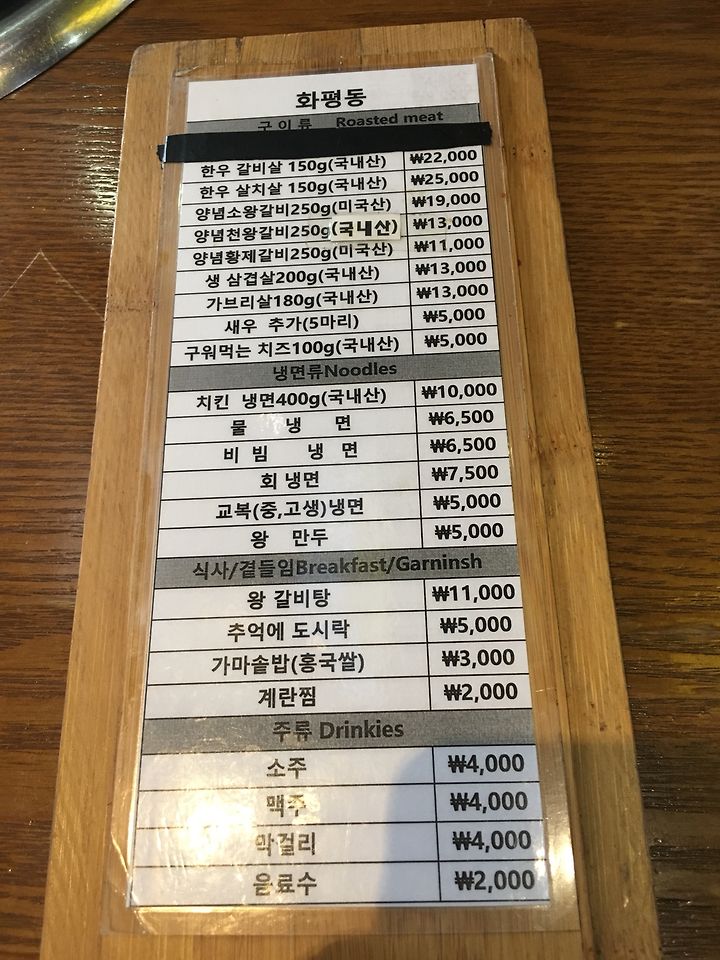 화평동
구이류 Roasted meat
한우 갈비살 150g(국내산) ₩22,000
한우 살치살 150g(국내산) ₩25,000
양념소왕갈비250g(미국산) ₩19,000
양념천왕갈비250g(국내산) ₩13,000
양념황제갈비250g(미국산) ₩11,000
생 삼겹살200g(국내산) ₩13,000
가브리살180g(국내산) ₩13,000
새우 추가(5마리) ₩5,000
구워먹는 치즈100g(국내산) ₩5,000
냉면류Noodles
치킨 냉면400g(국내산) ₩10,000
물 냉 면 ₩6,500
비 빔 냉 면 ₩6,500
회 냉면 ₩7,500
교복(중,고생)냉면 ₩5,000
왕 만두 ₩5,000
식사/곁들임Breakfast/Garninsh
왕 갈비탕 ₩11,000
추억에 도시락 ₩5,000
가마솥밥(홍국쌀) ₩3,000
계란찜 ₩2,000
주류 Drinkies
소주 ₩4,000
맥주 ₩4,000
막걸리 ₩4,000
음료수 ₩2,000